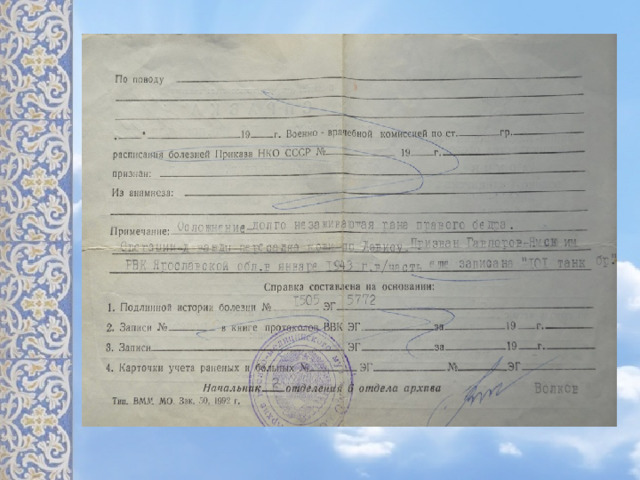 По поводу
"___" 19___г. Военно-врачебной комиссией по ст.______гр.
расписания болезней Приказа НКО СССР №______ 19___г.
признан:
Из анамнеза:
Примечание: Осложнение-долго незаживающая рана правого бедра.
кожи по Призван
РВК Ярославской обл.в январе 1943 г.в/часть записана "101 танк бр"
Справка составлена на основании:
1. Подлинной истории болезни № 1505 ЭГ 5772
2. Записи №______ в книге протоколов ВВК ЭГ______за______19___г.
3. Записи______ЭГ______за______19___г.
4. Карточки учета раненых и больных №______ЭГ______№______ЭГ______
Начальник___отделения 6 отдела архива Волков
Тип. ВМУ. МО. Зак. 50, 1992 г.